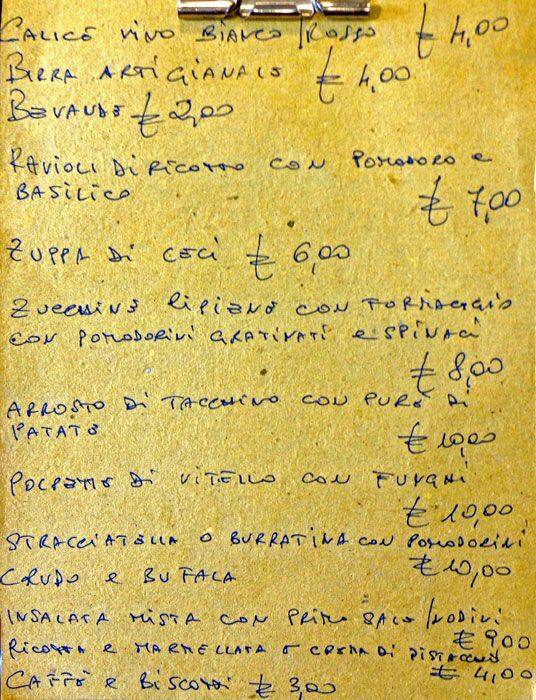 CALICE VINO BIANCO/ROSSO € 4,00
BIRRA ARTIGIANALE € 4,00
BEVANDE € 2,00
RAVIOLI DI RICOTTA CON POMODORO E
BASILICO
€ 7,00
ZUPPA DI CECI € 6,00
ZUCCHINE RIPIENE CON FORMAGGIO
CON POMODORINI GRATINATI E SPINACI
€ 8,00
ARROSTO DI TACCHINO CON PURÈ DI
PATATE
€ 10,00
POLPETTE DI VITELLO CON FUNGHI
€ 10,00
STRACCIATELLA O BURRATINA CON POMODORINI
CRUDO E BUFALA € 10,00
INSALATA MISTA CON PRIMO SALE/NODINI
€ 9,00
RICOTTA E MARMELLATA O CREMA DI PISTACCHIO
€ 4,00
CAFFÈ E BISCOTTI € 3,00